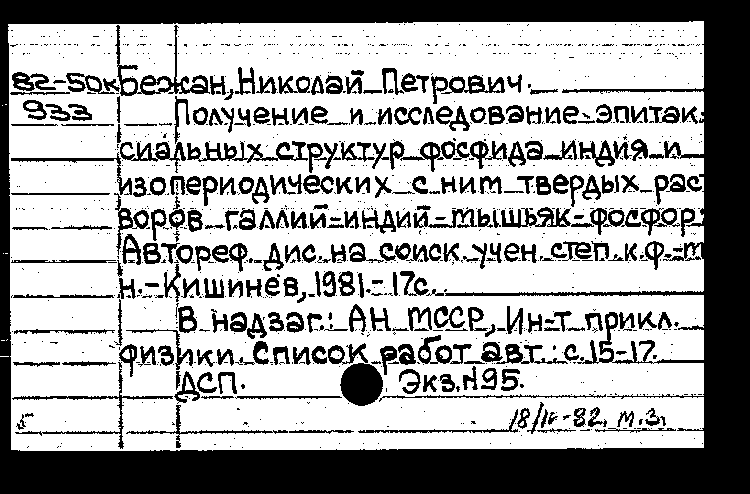 82-50к Бежан, Николай Петрович.
933 Получение и исследование эпитак-
сиальных структур фосфида индия и
изопериодических с ним твердых рас
воров галлий-индий-мышьяк-фосфор:
Автореф. дис. на соиск. учен. степ. к.ф.-м
н. - Кишинев, 1981. - 17с.
В надзаг.: АН МССР, Ин-т прикл.
физики. Список работ авт.: с.15-17.
ДСП. Экз.№95.
18/IV-82. м.з.